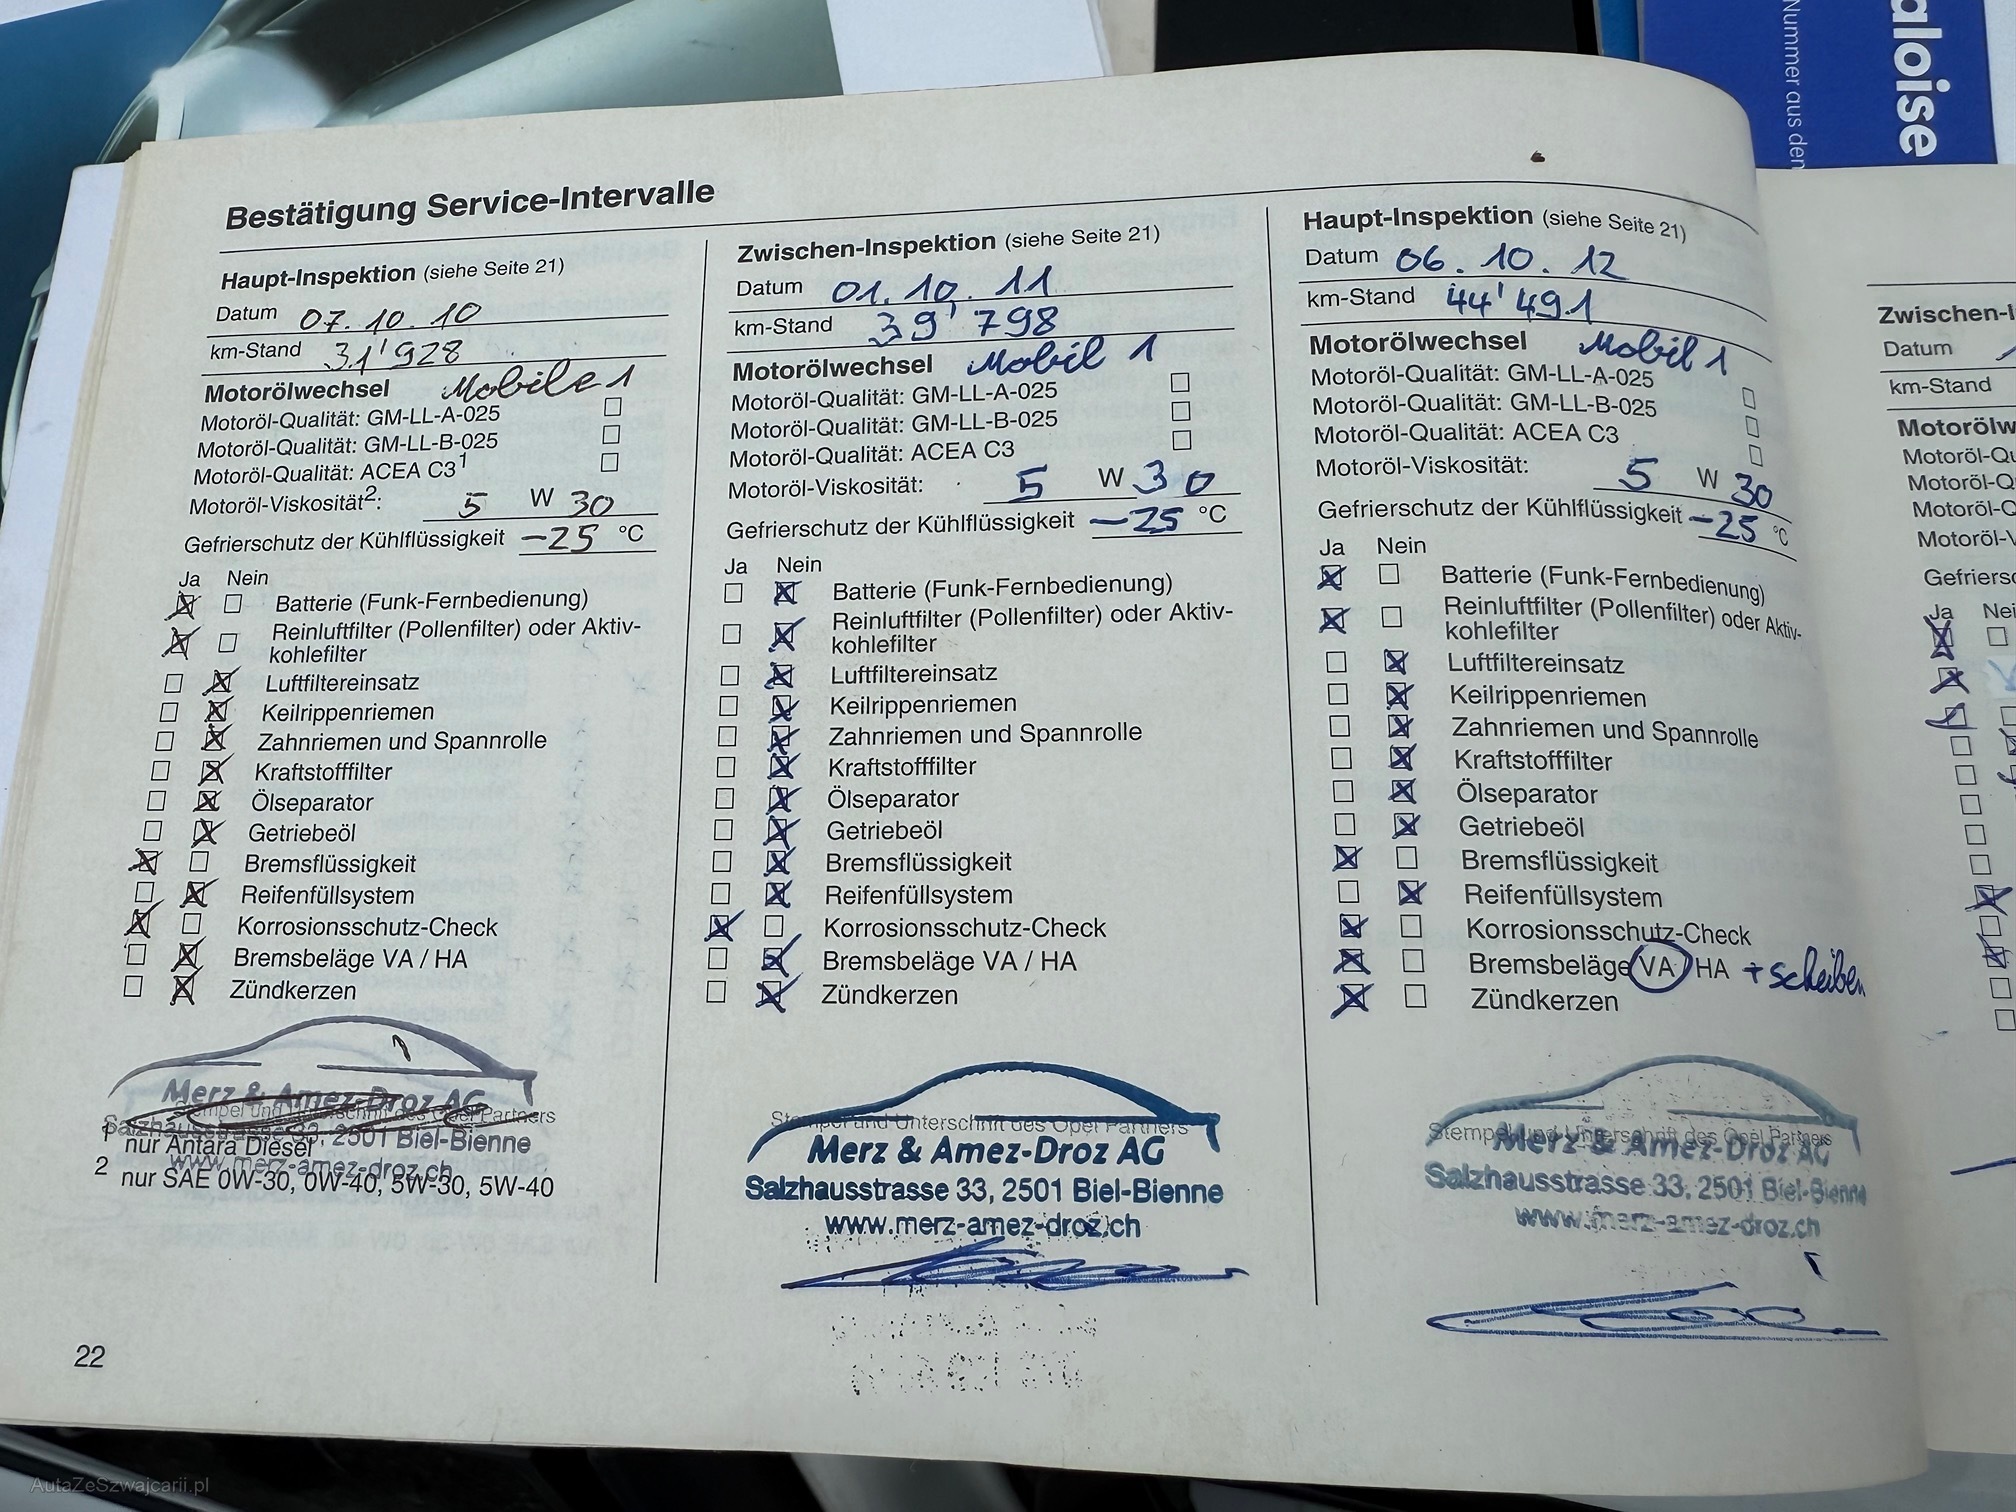 aloise
Nummer aus den
Bestätigung Service-Intervalle
Haupt-Inspektion (siehe Seite 21)
Datum 07.10.10
km-Stand 31'928
Motorölwechsel Mobile 1
Motoröl-Qualität: GM-LL-A-025
Motoröl-Qualität: GM-LL-B-025
Motoröl-Qualität: ACEA C3¹
Motoröl-Viskosität²: 5 W 30
Gefrierschutz der Kühlflüssigkeit -25 °C
Ja Nein
Batterie (Funk-Fernbedienung)
Reinluftfilter (Pollenfilter) oder Aktiv-
kohlefilter
Luftfiltereinsatz
Keilrippenriemen
Zahnriemen und Spannrolle
Kraftstofffilter
Ölseparator
Getriebeöl
Bremsflüssigkeit
Reifenfüllsystem
Korrosionsschutz-Check
Bremsbeläge VA / HA
Zündkerzen
Merz & Amez-Droz AG
Stempel und Unterschrift des Opel Partners
Salzhausstrasse 33, 2501 Biel-Bienne
1 nur Antara Diesel
www.merz-amez-droz.ch
2 nur SAE 0W-30, 0W-40, 5W-30, 5W-40
22
Zwischen-Inspektion (siehe Seite 21)
Datum 01.10.11
km-Stand 39'798
Motorölwechsel Mobil 1
Motoröl-Qualität: GM-LL-A-025
Motoröl-Qualität: GM-LL-B-025
Motoröl-Qualität: ACEA C3
Motoröl-Viskosität: 5 W 30
Gefrierschutz der Kühlflüssigkeit -25 °C
Ja Nein
Batterie (Funk-Fernbedienung)
Reinluftfilter (Pollenfilter) oder Aktiv-
kohlefilter
Luftfiltereinsatz
Keilrippenriemen
Zahnriemen und Spannrolle
Kraftstofffilter
Ölseparator
Getriebeöl
Bremsflüssigkeit
Reifenfüllsystem
Korrosionsschutz-Check
Bremsbeläge VA / HA
Zündkerzen
Stempel und Unterschrift des Opel Partners
Merz & Amez-Droz AG
Salzhausstrasse 33, 2501 Biel-Bienne
www.merz-amez-droz.ch
Haupt-Inspektion (siehe Seite 21)
Datum 06.10.12
km-Stand 44'491
Motorölwechsel Mobil 1
Motoröl-Qualität: GM-LL-A-025
Motoröl-Qualität: GM-LL-B-025
Motoröl-Qualität: ACEA C3
Motoröl-Viskosität: 5 W 30
Gefrierschutz der Kühlflüssigkeit -25 °C
Ja Nein
Batterie (Funk-Fernbedienung)
Reinluftfilter (Pollenfilter) oder Aktiv-
kohlefilter
Luftfiltereinsatz
Keilrippenriemen
Zahnriemen und Spannrolle
Kraftstofffilter
Ölseparator
Getriebeöl
Bremsflüssigkeit
Reifenfüllsystem
Korrosionsschutz-Check
Bremsbeläge VA / HA + scheiben
Zündkerzen
Stempel und Unterschrift des Opel Partners
Merz & Amez-Droz AG
Salzhausstrasse 33, 2501 Biel-Bienne
www.merz-amez-droz.ch
Zwischen-I
Datum
km-Stand
Motorölw
Motoröl-Qu
Motoröl-Q
Motoröl-Q
Motoröl-V
Gefriersc
Ja Nei
AutaZeSzwajcarii.pl